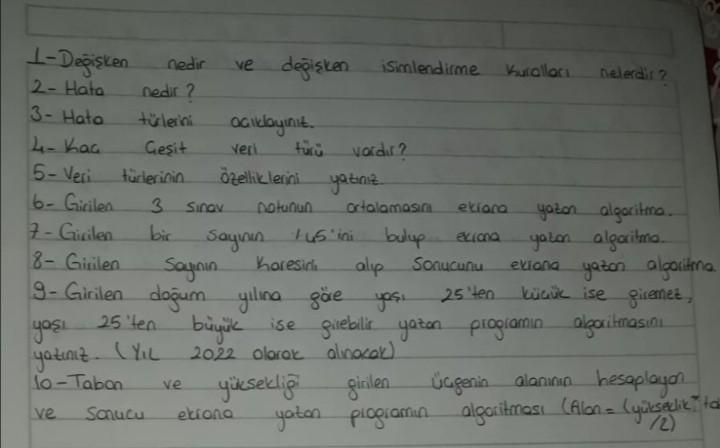 1-Değişken nedir ve değişken isimlendirme kuralları nelerdir?
2-Hata nedir?
3-Hata türlerini açıklayınız.
4-Kaç Çeşit veri türü vardır?
5-Veri türlerinin özelliklerini yazınız.
6-Girilen 3 sınav notunun ortalamasını ekrana yazan algoritma.
7-Girilen bir sayının %5'ini bulup ekrana yazan algoritma.
8-Girilen Sayının karesini alıp sonucunu ekrana yazan algoritma
9-Girilen doğum yılına göre yaşı 25'ten küçük ise giremez,
yaşı 25'ten büyük ise girebilir yazan programın algoritmasını
yazınız. (Yıl 2022 olarak alınacak)
10-Taban ve yüksekliği girilen üçgenin alanının hesaplayan
ve sonucu ekrana yazan programın algoritması (Alan = (yükseklik * ta
/2)